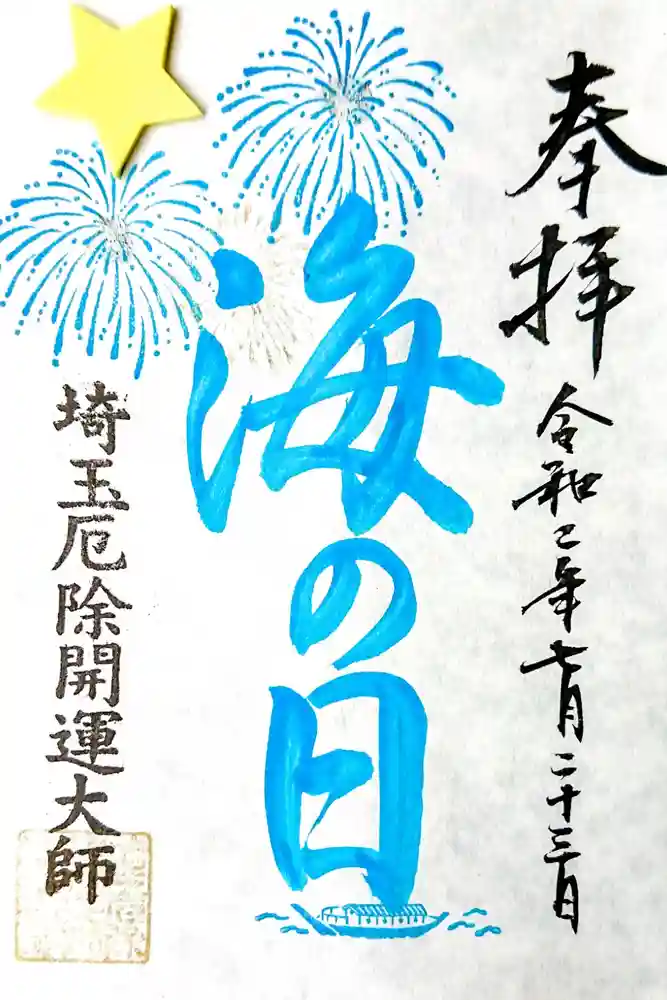 奉拝
令和二年七月二十三日
海の日
埼玉厄除開運大師